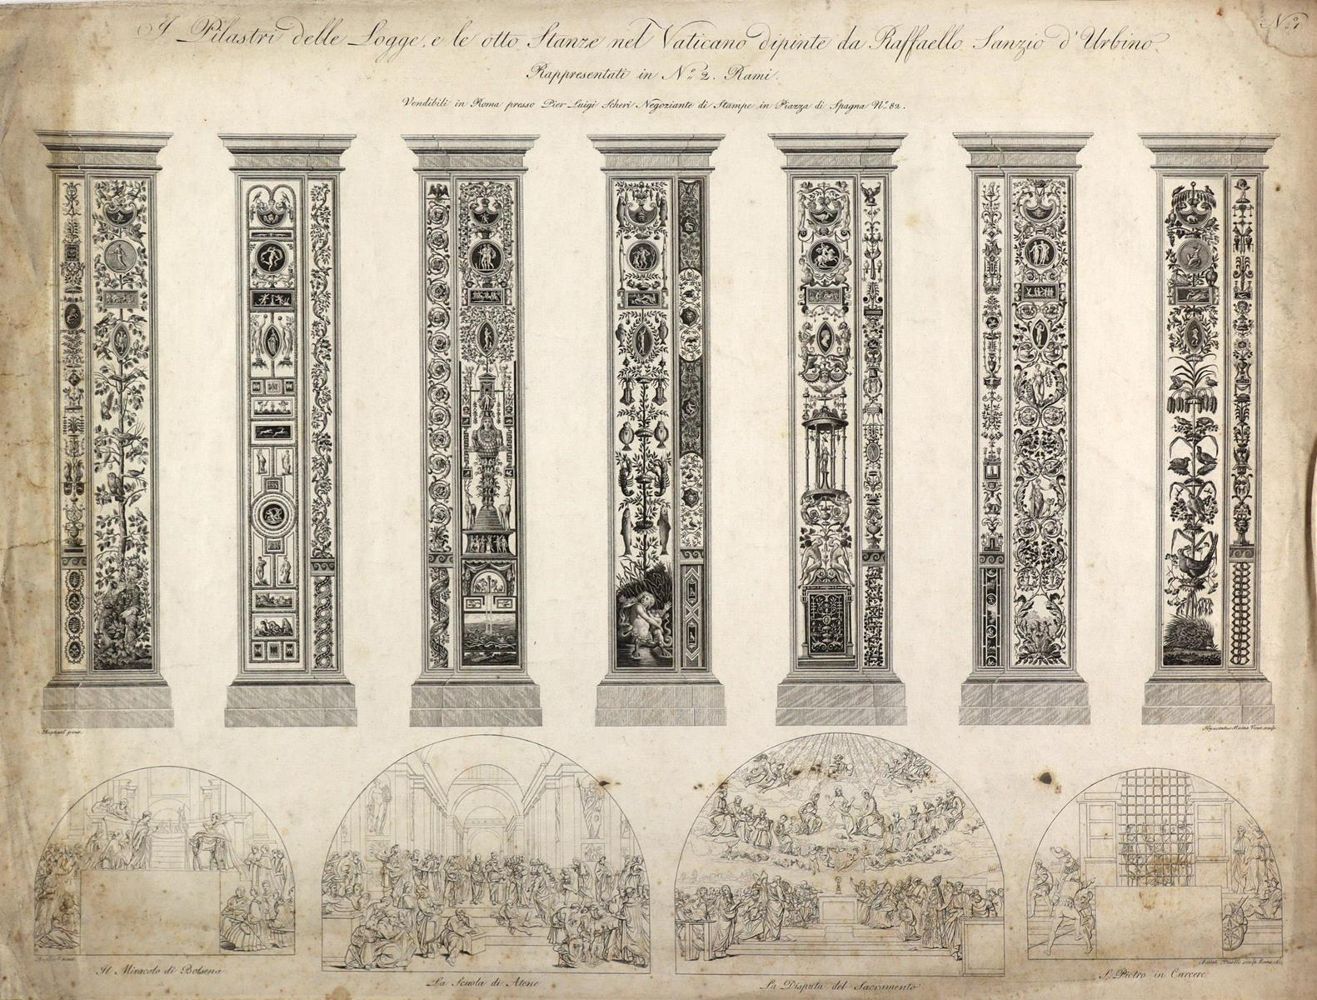 N.º 1
I Pilastri delle Logge, e le otto Stanze nel Vaticano dipinte da Raffaello Sanzio d'Urbino.
Rappresentati in N.º 2. Rami.
Vendibili in Roma presso Pier Luigi Scheri Negoziante di Stampe in Piazza di Spagna N.º 82.
Raphael pinx.
sculp.
Il Miracolo di Bolsena
La Scuola di Atene
La Disputa del Sacramento
S. Pietro in Carcere